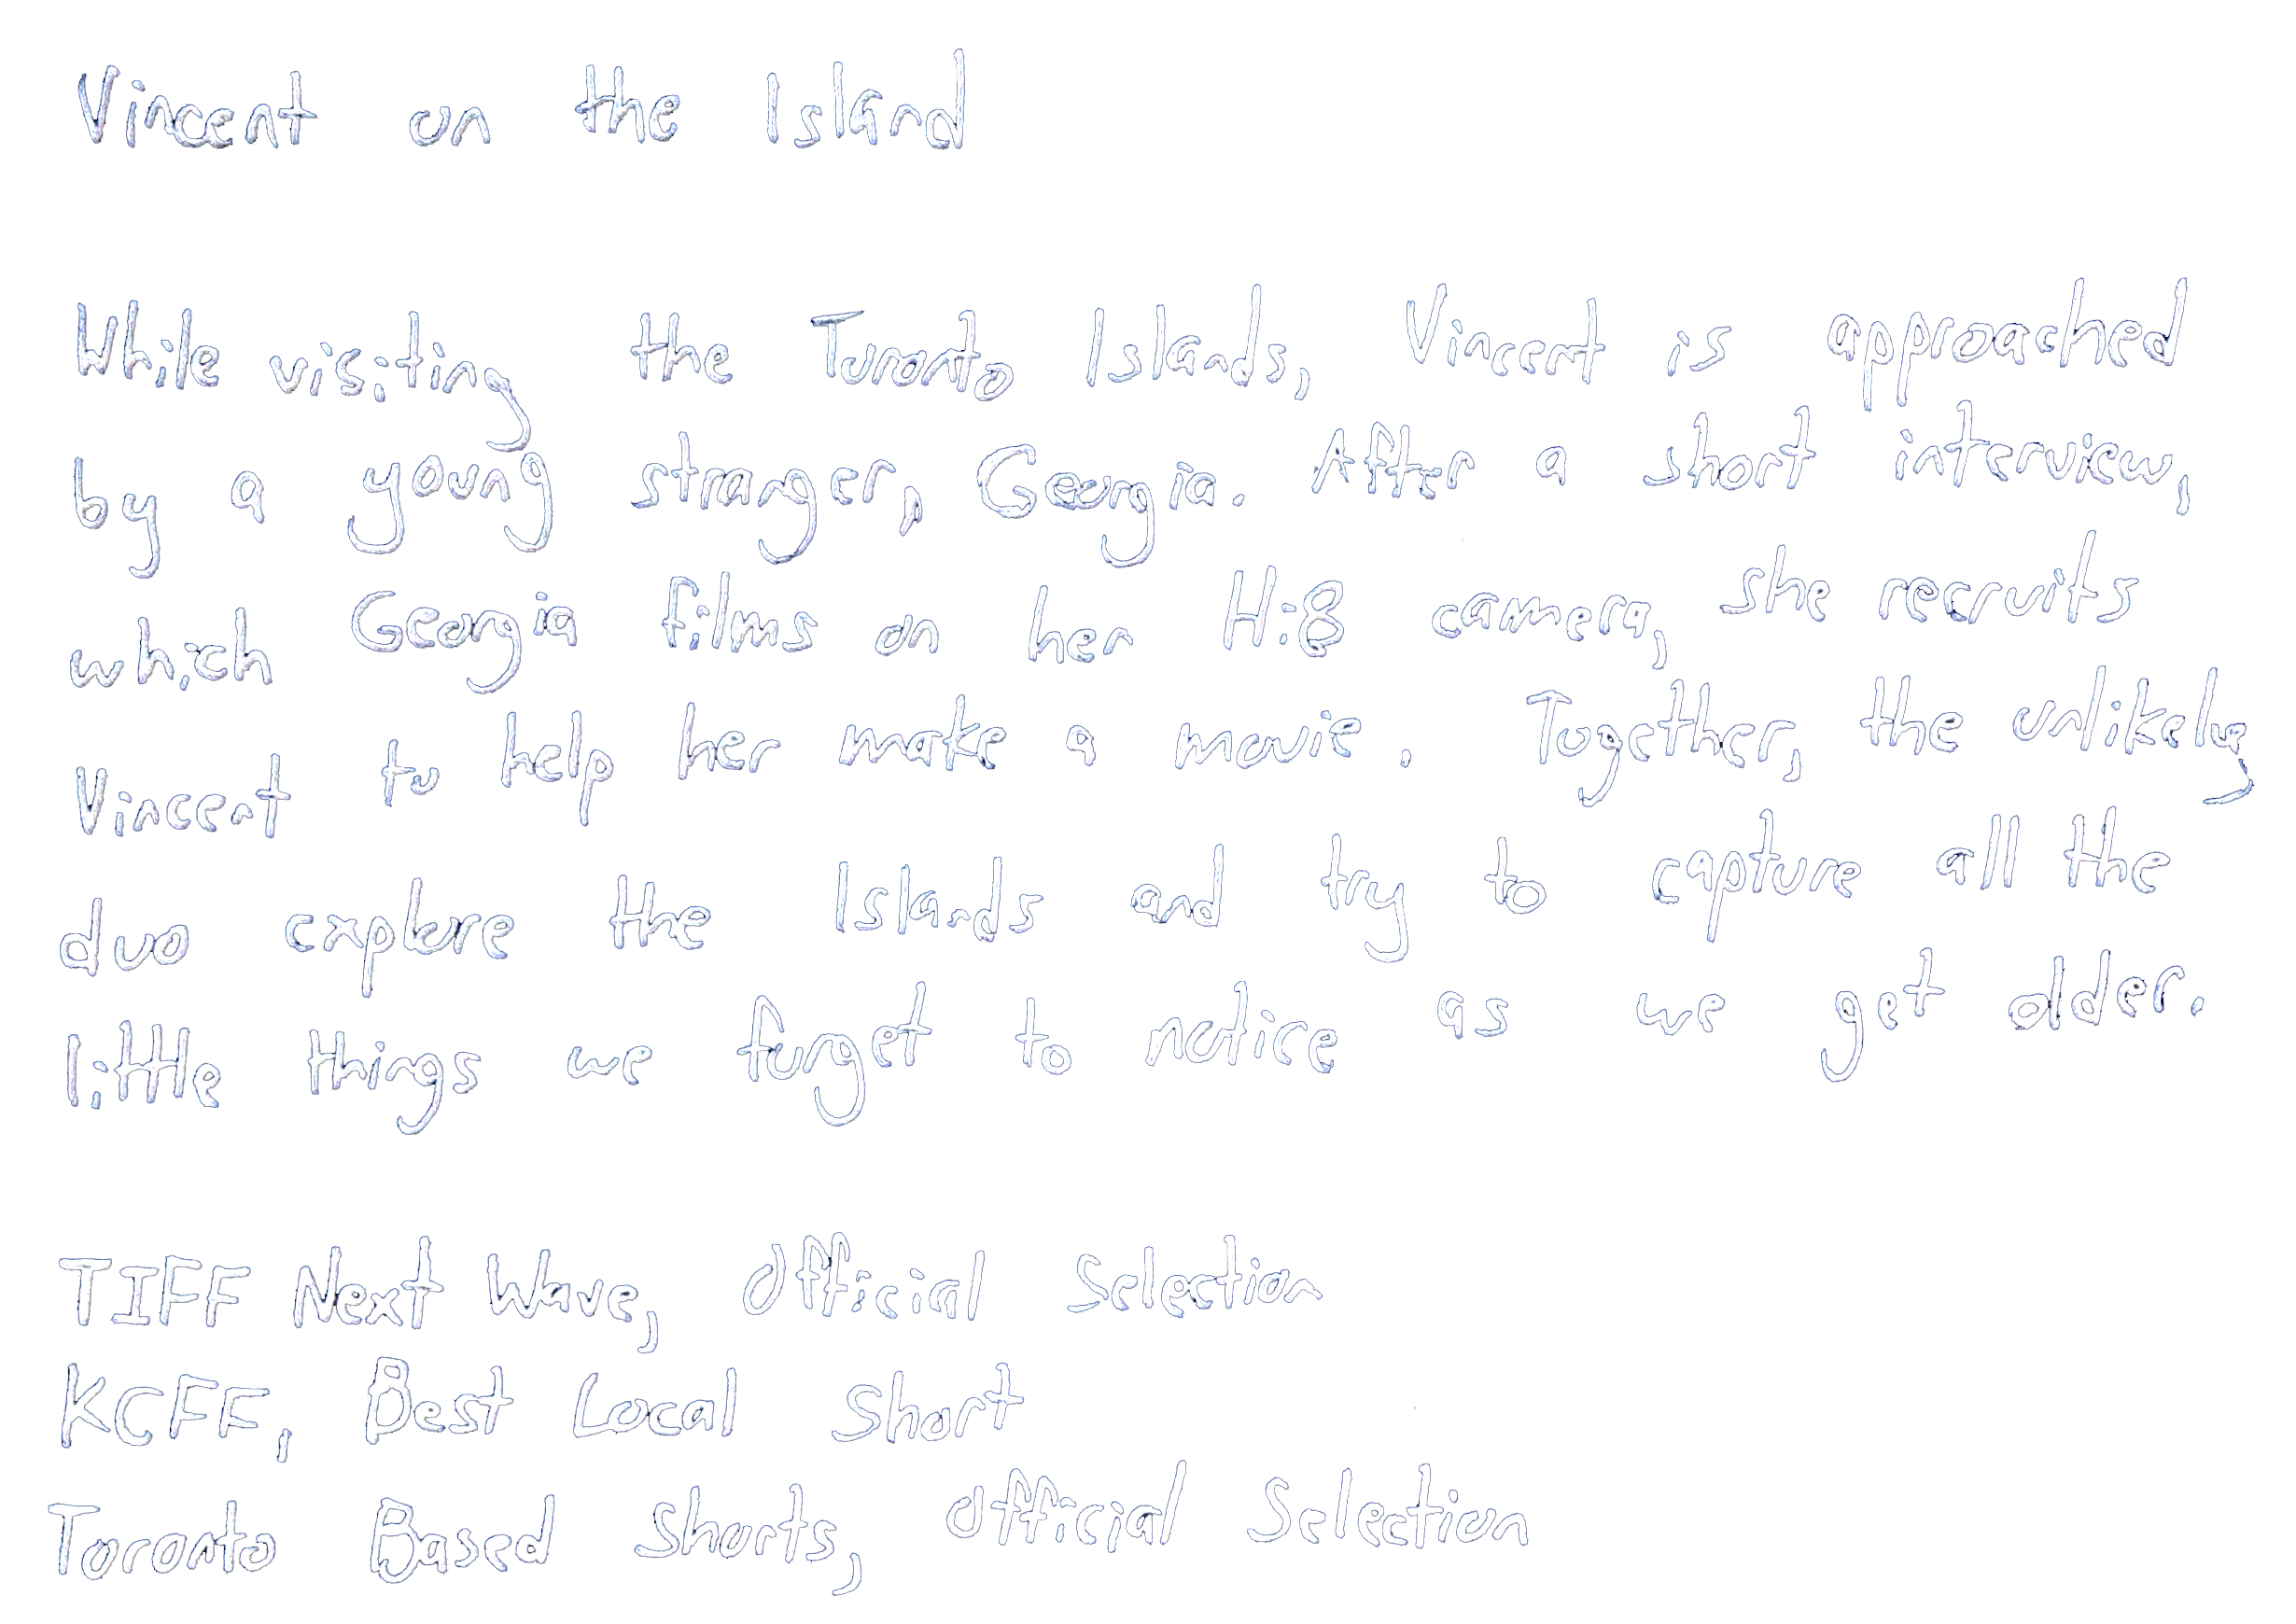 Vincent on the Island
While visiting the Toronto Islands, Vincent is approached
by a young stranger, Georgia. After a short interview,
which Georgia films on her Hi8 camera, she recruits
Vincent to help her make a movie. Together, the unlikely
duo explore the Islands and try to capture all the
little things we forget to notice as we get older.
TIFF Next Wave, Official Selection
KCFF, Best Local Short
Toronto Based Shorts, Official Selection